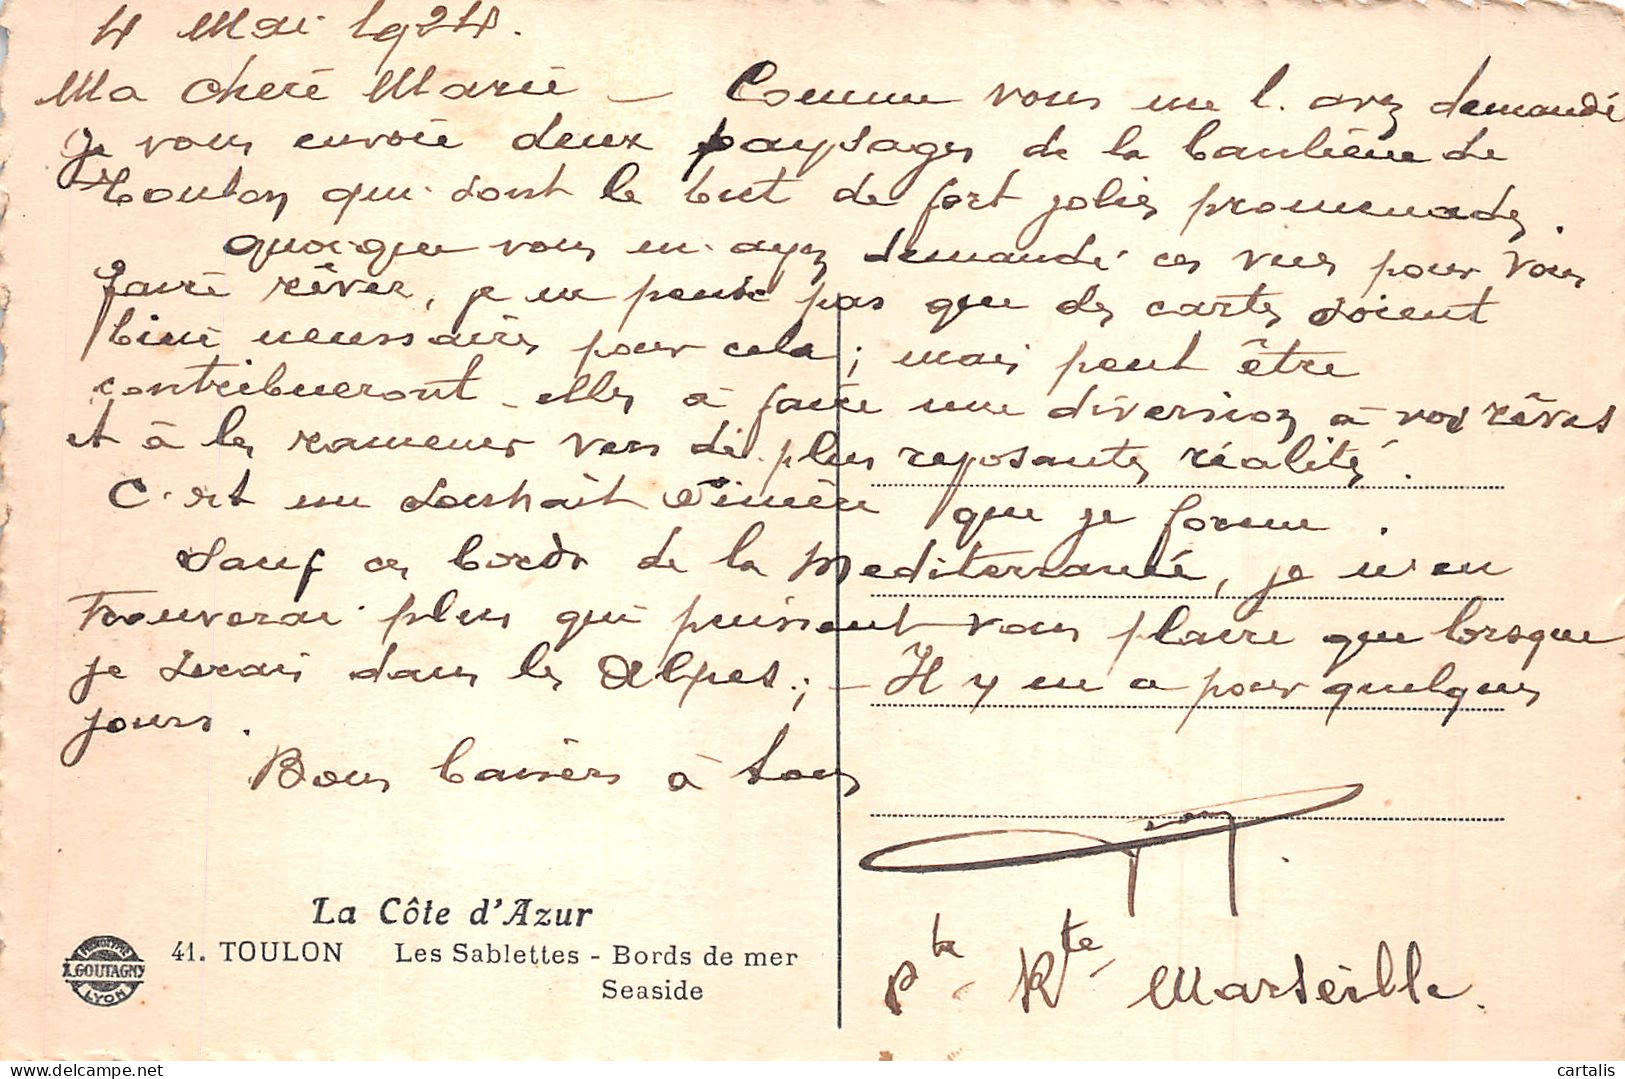 4 Mai 1924.
Ma chere Marie – Comme vous me l'avez demandé
je vous envoie deux paysages de la banlieue de
Toulon qui sont le but de fort jolies promenades.
quoique vous m'ayez demandé ces vues pour vous
faire rêver, je ne pense pas que des cartes soient
bien necessaires pour cela; mais peut être
contribueront-elles à faire une diversion à vos rêves
et à les ramener vers de plus reposantes réalités.
C'est un souhait sincère que je forme.
Sauf ces bords de la Mediterranée, je n'en
trouverai plus qui puissent vous plaire que lorsque
je serai dans les Alpes; – Il y en a pour quelques
jours.
Bons baisers à tous
La Côte d'Azur
41. TOULON Les Sablettes - Bords de mer
Seaside
L.GOUTAGNY
LYON
Pte Rte Marseille.
cartalis